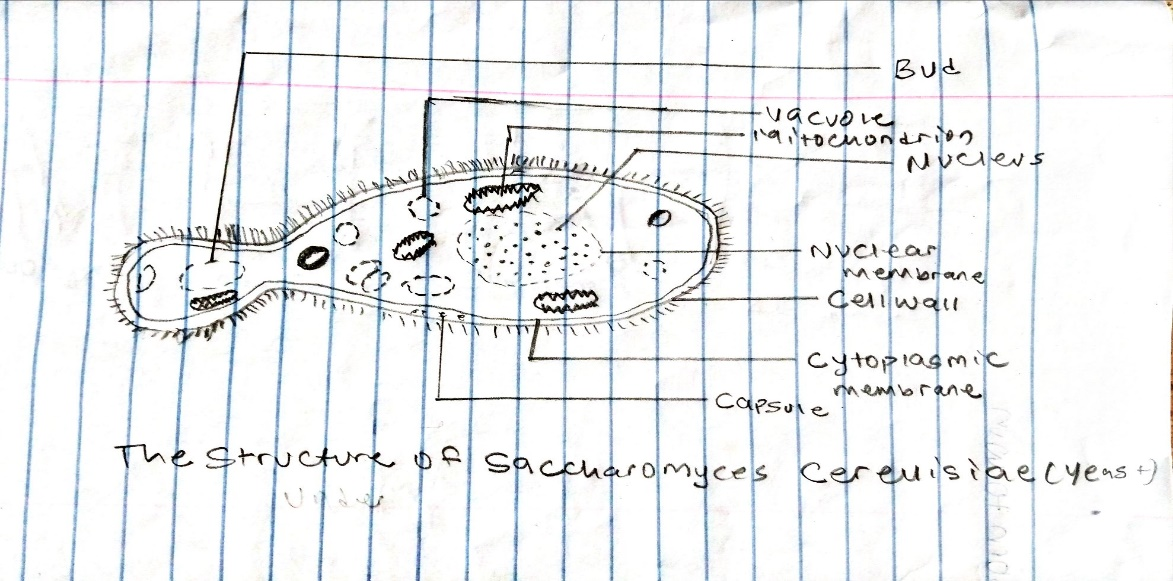 Bud
Vacuole
Mitochondrion
Nucleus
Nuclear
membrane
Cell wall
Cytoplasmic
membrane
Capsule
The Structure of Saccharomyces Cerevisiae (yeast)
Under